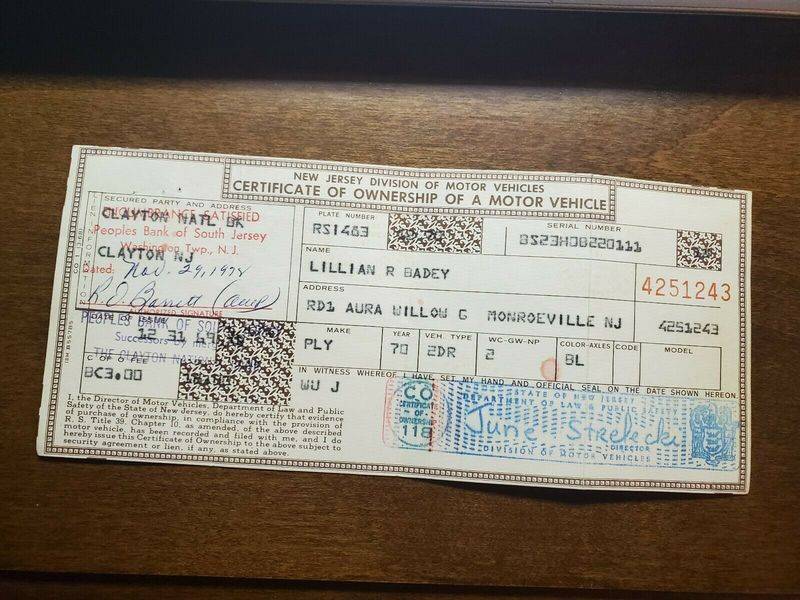 NEW JERSEY DIVISION OF MOTOR VEHICLES
CERTIFICATE OF OWNERSHIP OF A MOTOR VEHICLE
SECURED PARTY AND ADDRESS
CLAYTON NATL BK
CLAYTON NJ
ENCUMBRANCE SATISFIED
Peoples Bank of South Jersey
Washington Twp., N. J.
Dated: Nov. 29, 1978
AUTHORIZED SIGNATURE
PEOPLES BANK OF SOU
Successors by
THE CLAYTON NATION
DATE OF ISSUE
12 31 69
C OF O FEE
BC3.00
PLATE NUMBER
RSI463
SERIAL NUMBER
BS23H0B220111
NAME
LILLIAN R BADEY
4251243
ADDRESS
RD1 AURA WILLOW G MONROEVILLE NJ 4251243
MAKE YEAR VEH. TYPE WC-GW-NP COLOR-AXLES CODE MODEL
PLY 70 2DR 2 BL
IN WITNESS WHEREOF, I HAVE SET MY HAND AND OFFICIAL SEAL ON THE DATE SHOWN HEREON.
WU J
CO
CERTIFICATE
OF
OWNERSHIP
118
STATE OF NEW JERSEY
DEPARTMENT OF LAW & PUBLIC SAFETY
June Strelecki
DIRECTOR
DIVISION OF MOTOR VEHICLES
I, the Director of Motor Vehicles, Department of Law and Public
Safety of the State of New Jersey, do hereby certify that evidence
of purchase of ownership, in compliance with the provision of
R. S. Title 39, Chapter 10, as amended, of the above described
motor vehicle, has been recorded and filed with me, and I do
hereby issue this Certificate of Ownership to the above subject to
security agreement or lien, if any, as stated above.